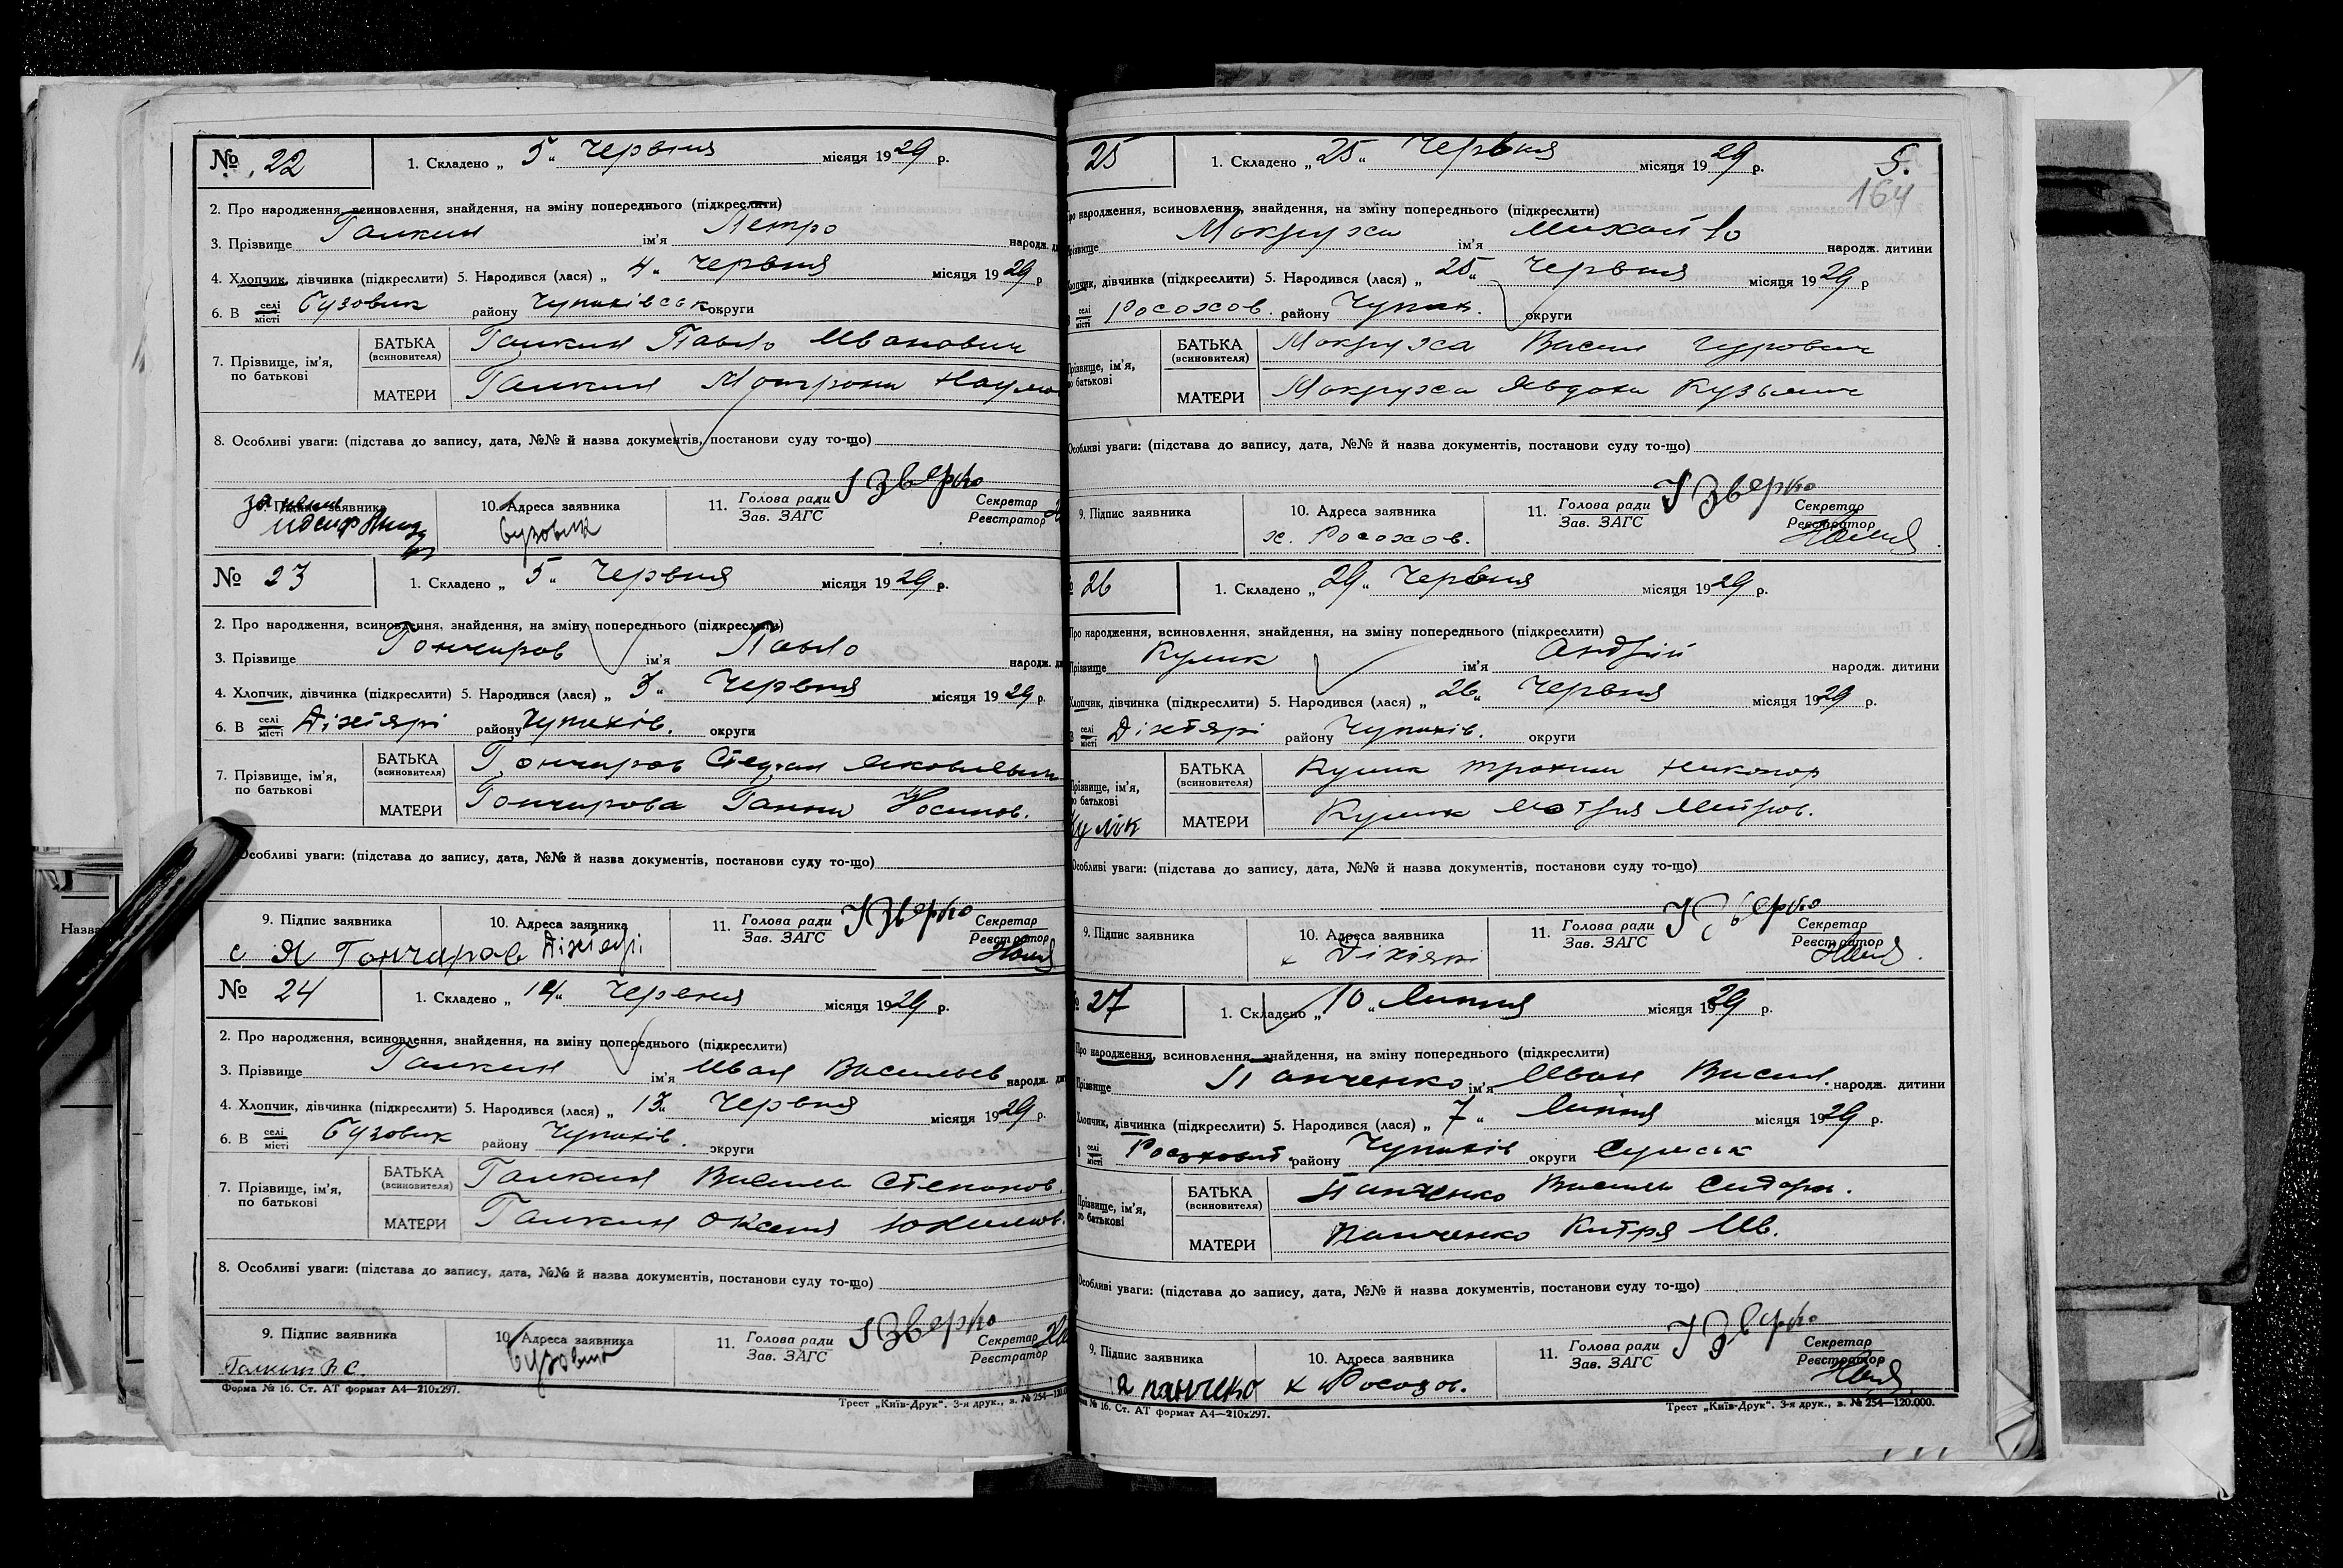 № 22
1. Складено „ 5 “ Червня місяця 1929 р.
2. Про народження, всиновлення, знайдення, на зміну попереднього (підкреслити)
3. Прізвище Галкин ім'я Петро народж. ди
4. Хлопчик, дівчинка (підкреслити) 5. Народився (лася) „ 4 “ Червня місяця 1929 р
6. В селі місті Бузовик району Чупахівськ округи
7. Прізвище, ім'я, по батькові
БАТЬКА (всиновителя) Галкин Павло Иванович
МАТЕРИ Галкин Мотрона Наумо
8. Особливі уваги: (підстава до запису, дата, №№ й назва документів, постанови суду то-що)
9. Підпис заявника
10. Адреса заявника Бузовик
11. Голова ради Зав. ЗАГС І Зверко
Секретар Реєстратор
№ 23
1. Складено „ 5 “ Червня місяця 1929 р.
2. Про народження, всиновлення, знайдення, на зміну попереднього (підкреслити)
3. Прізвище Гончаров ім'я Павло народж. ди
4. Хлопчик, дівчинка (підкреслити) 5. Народився (лася) „ 3 “ Червня місяця 1929 р.
6. В селі місті Діхтярі району Чупахів. округи
7. Прізвище, ім'я, по батькові
БАТЬКА (всиновителя) Гончаров Стефан Яковлевич
МАТЕРИ Гончарова Ганна Йосипов.
Особливі уваги: (підстава до запису, дата, №№ й назва документів, постанови суду то-що)
9. Підпис заявника с Я Гончаров
10. Адреса заявника Діхтярі
11. Голова ради Зав. ЗАГС І Зверко
Секретар Реєстратор
№ 24
1. Складено „ 14 “ Червня місяця 1929 р.
2. Про народження, всиновлення, знайдення, на зміну попереднього (підкреслити)
3. Прізвище Галкин ім'я Иван Васильев народж. ди
4. Хлопчик, дівчинка (підкреслити) 5. Народився (лася) „ 13 “ Червня місяця 1929 р.
6. В селі місті Бузовик району Чупахів. округи
7. Прізвище, ім'я, по батькові
БАТЬКА (всиновителя) Галкин Василь Степанов.
МАТЕРИ Галкин Оксеня Юхимов.
8. Особливі уваги: (підстава до запису, дата, №№ й назва документів, постанови суду то-що)
9. Підпис заявника Галкин В С.
10. Адреса заявника Бузовик
11. Голова ради Зав. ЗАГС І Зверко
Секретар Реєстратор
Форма № 16. Ст. АТ формат А4—210х297.
Трест „Київ-Друк“. 3-я друк., з. № 254—120.0
25
1. Складено „ 25 “ Червня місяця 1929 р.
5.
164
ро народження, всиновлення, знайдення, на зміну попереднього (підкреслити)
різвище Мокруха ім'я Михайло народж. дитини
лопчик, дівчинка (підкреслити) 5. Народився (лася) „ 25 “ Червня місяця 1929 р
селі місті Росохов. району Чупах. округи
Прізвище, ім'я, по батькові
БАТЬКА (всиновителя) Мокруха Васил Гурович
МАТЕРИ Мокруха Явдоха Кузьмин
Особливі уваги: (підстава до запису, дата, №№ й назва документів, постанови суду то-що)
9. Підпис заявника
10. Адреса заявника х. Росохов.
11. Голова ради Зав. ЗАГС І Зверко
Секретар Реєстратор
26
1. Складено „ 29 “ Червня місяця 1929 р.
Про народження, всиновлення, знайдення, на зміну попереднього (підкреслити)
Прізвище Кулик ім'я Андрій народж. дитини
Хлопчик, дівчинка (підкреслити) 5. Народився (лася) „ 26 “ Червня місяця 1929 р.
В селі місті Діхтярі району Чупахів. округи
Прізвище, ім'я, по батькові
Кулік
БАТЬКА (всиновителя) Кулик Трохим Никонор
МАТЕРИ Кулик Мотря Митров.
Особливі уваги: (підстава до запису, дата, №№ й назва документів, постанови суду то-що)
9. Підпис заявника
10. Адреса заявника х Діхтярі
11. Голова ради Зав. ЗАГС І Зверко
Секретар Реєстратор
№ 27
1. Складено „ 10 “ Липня місяця 1929 р.
Про народження, всиновлення, знайдення, на зміну попереднього (підкреслити)
Прізвище Панченко ім'я Иван Васил. народж. дитини
Хлопчик, дівчинка (підкреслити) 5. Народився (лася) „ 7 “ Липня місяця 1929 р.
В селі місті району Чупахів округи Сумськ
Прізвище, ім'я, по батькові
БАТЬКА (всиновителя) Панченко Василь Сидорв.
МАТЕРИ Панченко Катря Ив.
Особливі уваги: (підстава до запису, дата, №№ й назва документів, постанови суду то-що)
9. Підпис заявника а панченко
10. Адреса заявника х Росохов.
11. Голова ради Зав. ЗАГС І Зверко
Секретар Реєстратор
№ 16. Ст. АТ формат А4—210х297.
Трест „Київ-Друк“. 3-я друк., з. № 254—120.000.
Назва